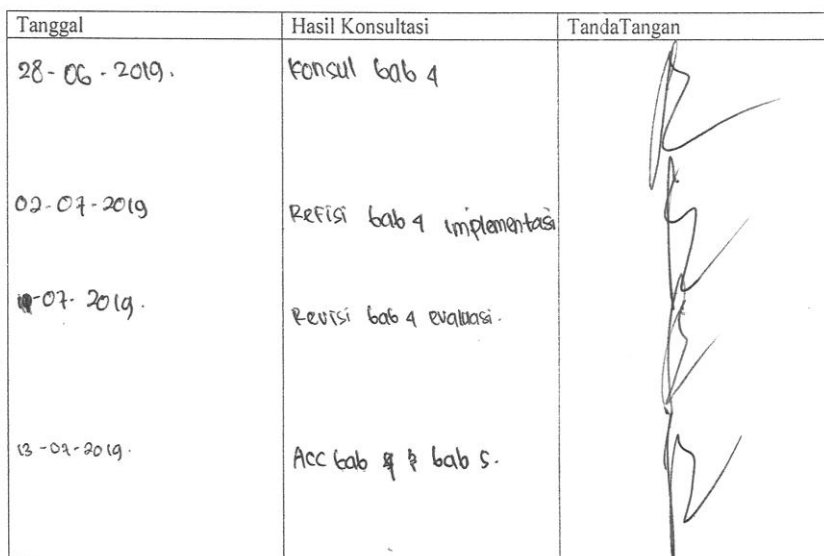 Tanggal Hasil Konsultasi TandaTangan
28-06-2019. Konsul bab 4
02-07-2019 Refisi bab 4 implementasi
-07-2019. Revisi bab 4 evaluasi.
13-07-2019. Acc bab 4 & bab 5.